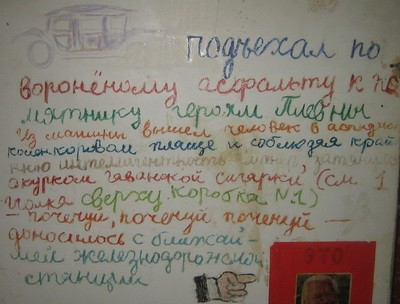 подъехал по
воронёному асфальту к па
мятнику героям Плевны.
Из машины вышел человек в
коленкоровом плаще и соблюдая край
нюю интеллигентность
окурком гаванской сигарки, (см.
полка сверху. Коробка №1)
— почечуй, почечуй, почечуй —
доносилось с ближай-
шей железнодорожной
станции
ЭТО